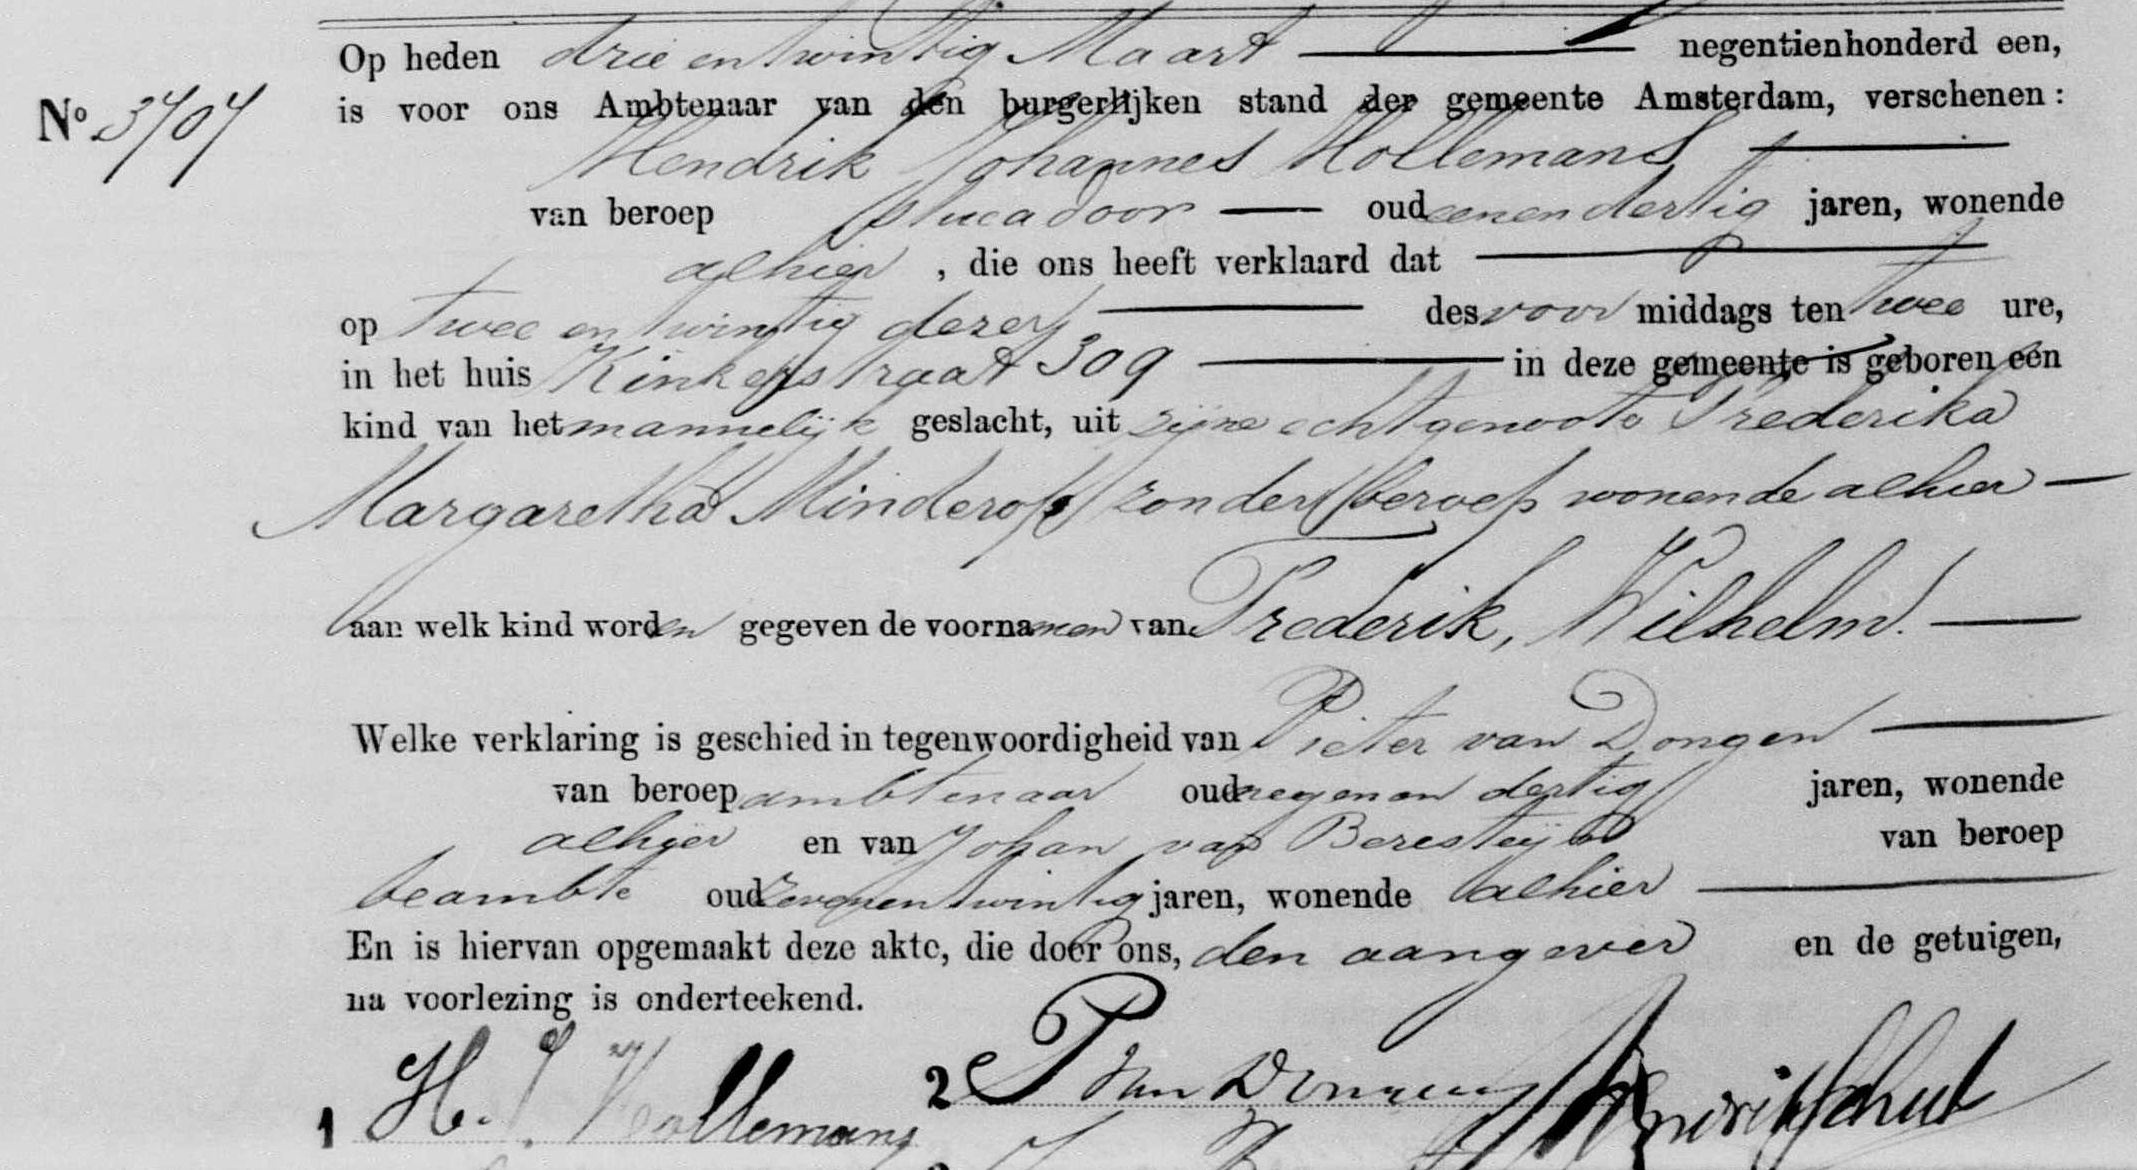 Op heden drie en twintig Maart negentienhonderd een,
No 3704
is voor ons Ambtenaar van den burgerlijken stand der gemeente Amsterdam, verschenen:
Hendrik Johannes Hollemans
van beroep stucadoor oud eenendertig jaren, wonende
alhier, die ons heeft verklaard dat
op twee en twintig dezer des voor middags ten twee ure,
in het huis Kinkerstraat 309 in deze gemeente is geboren een
kind van het mannelijk geslacht, uit zijne echtgenoote Frederika
Margaretha Minderop zonder beroep wonende alhier
aan welk kind worden gegeven de voornamen van Frederik, Wilhelm.
Welke verklaring is geschied in tegenwoordigheid van Pieter van Dongen
van beroep ambtenaar oud negenen dertig jaren, wonende
alhier en van Johan van Beresteijn van beroep
beambte oud zevenentwintig jaren, wonende alhier
En is hiervan opgemaakt deze akte, die door ons, den aangever en de getuigen,
na voorlezing is onderteekend.
1 H. J. Hollemans 2 P van Dongen